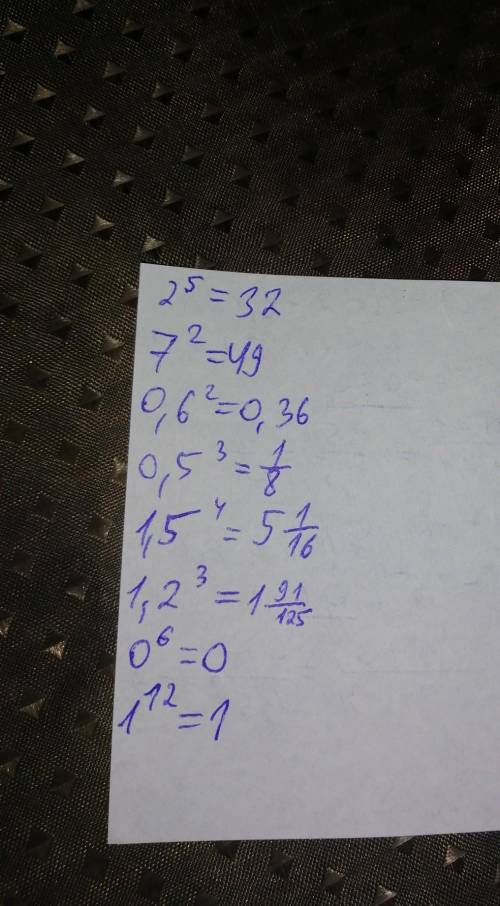 2⁵ = 32
7² = 49
0,6² = 0,36
0,5³ = 1/8
1,5⁴ = 5 1/16
1,2³ = 1 91/125
0⁶ = 0
1¹² = 1